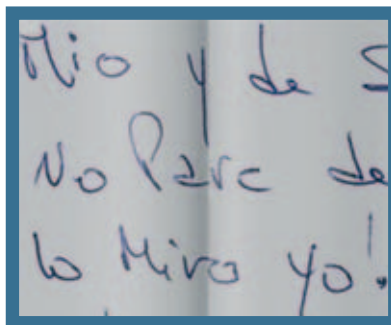 Mio y de S
No Parc de
lo Miro yo!